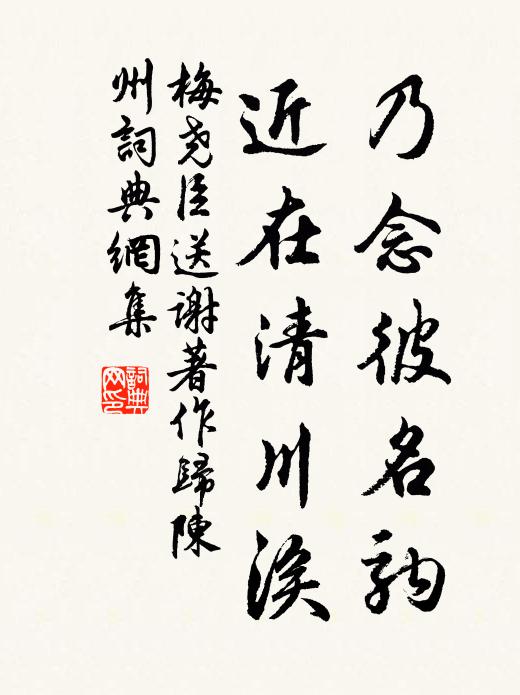 乃念彼名駒
近在清川涘
梅尧臣送谢著作歸陳
州詞典網集
詞典
网印